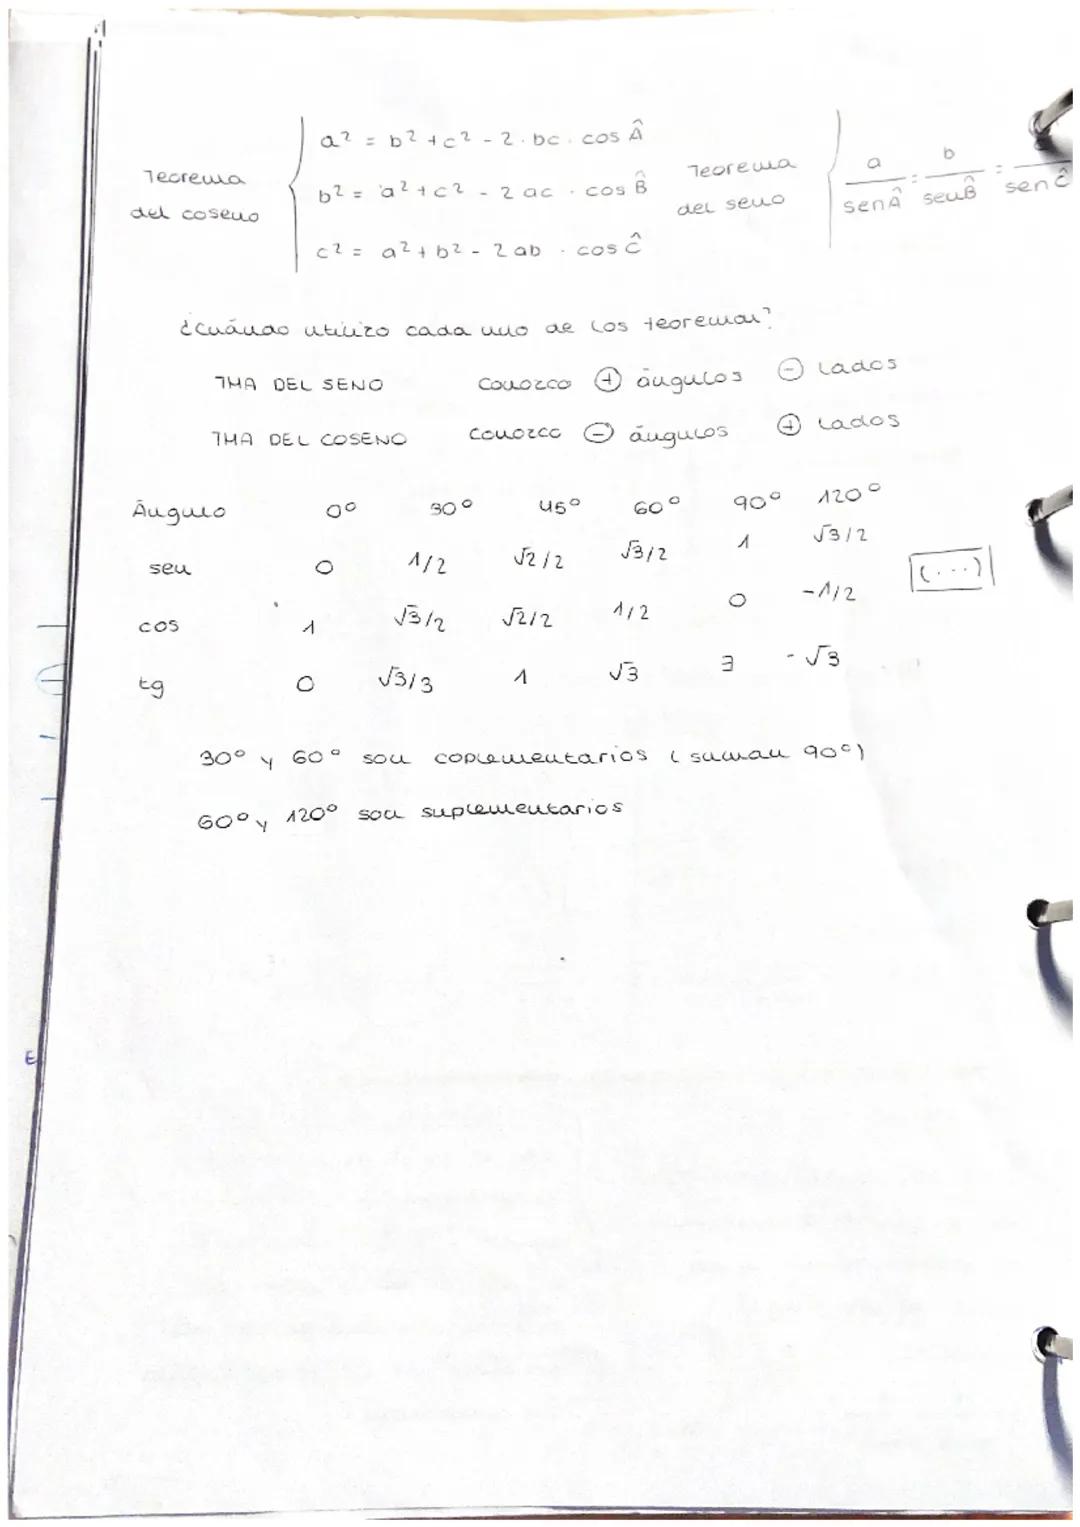 a² = b² + c² - 2·bc·cos Â
Teorema del coseno
b² = a² + c² - 2 ac · cos B̂
c² = a² + b² - 2ab · cos Ĉ
Teorema del seno
a/sen Â = b/sen B̂ = c/sen Ĉ
¿Cuándo utilizo cada uno de los teoremas?
TMA DEL SENO conozco ⊕ ángulos ⊖ lados
TMA DEL COSENO conozco ⊖ ángulos ⊕ lados
Ángulo 0° 30° 45° 60° 90° 120°
sen 0 1/2 √2/2 √3/2 1 √3/2
(...)
cos 1 √3/2 √2/2 1/2 0 -1/2
tg 0 √3/3 1 √3 ∃ -√3
30° y 60° son coplementarios (suman 90°)
60° y 120° son suplementarios
E